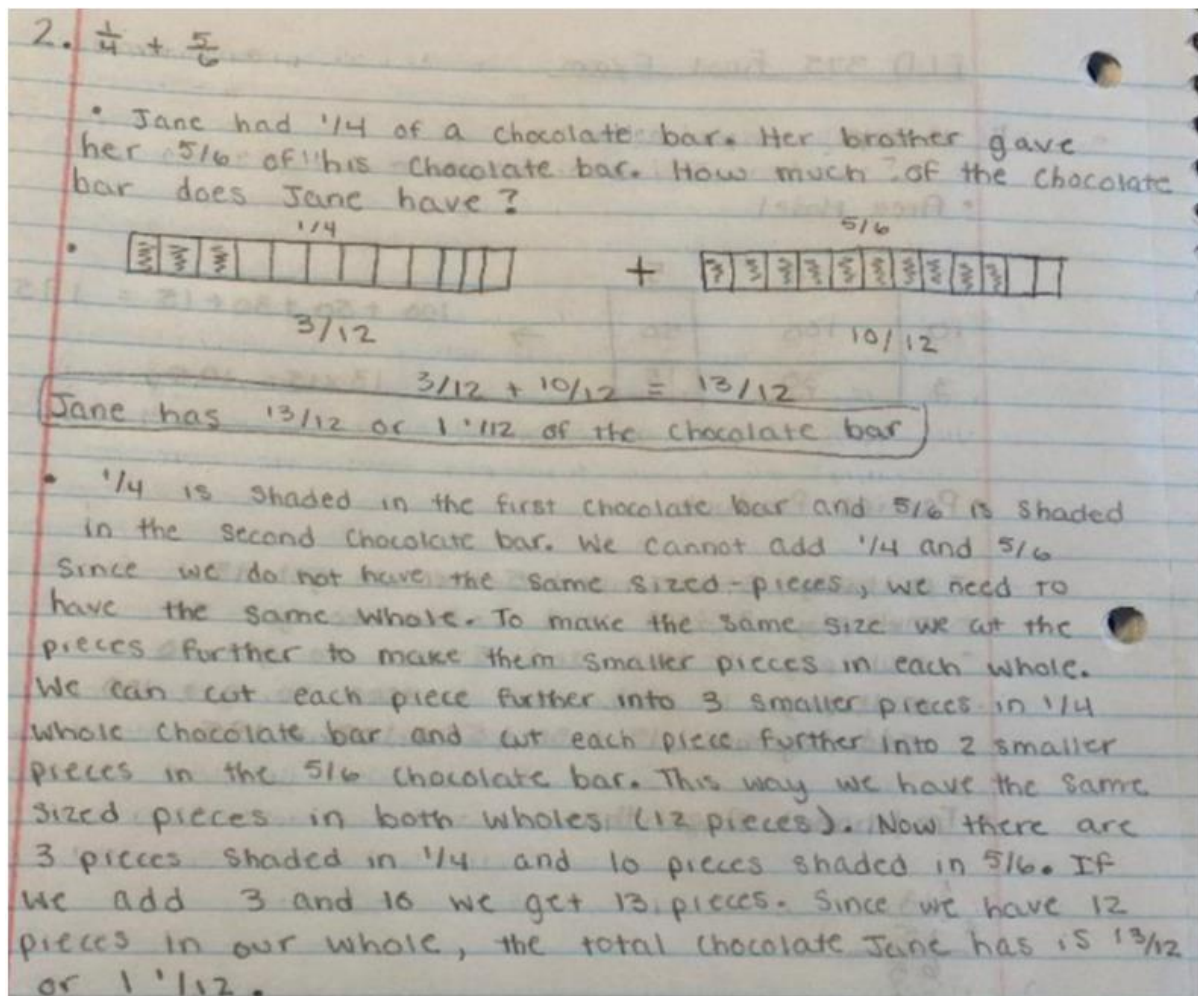 2. 1/4 + 5/6
• Jane had 1/4 of a chocolate bar. Her brother gave
her 5/6 of his chocolate bar. How much of the chocolate
bar does Jane have?
1/4 5/6
• +
3/12 10/12
3/12 + 10/12 = 13/12
Jane has 13/12 or 1 1/12 of the chocolate bar
• 1/4 is shaded in the first chocolate bar and 5/6 is shaded
in the second chocolate bar. We cannot add 1/4 and 5/6
since we do not have the same sized-pieces, we need to
have the same whole. To make the same size we cut the
pieces further to make them smaller pieces in each whole.
We can cut each piece further into 3 smaller pieces in 1/4
whole chocolate bar and cut each piece further into 2 smaller
pieces in the 5/6 chocolate bar. This way we have the same
sized pieces in both wholes (12 pieces). Now there are
3 pieces shaded in 1/4 and 10 pieces shaded in 5/6. If
we add 3 and 10 we get 13 pieces. Since we have 12
pieces in our whole, the total chocolate Jane has is 13/12
or 1 1/12.